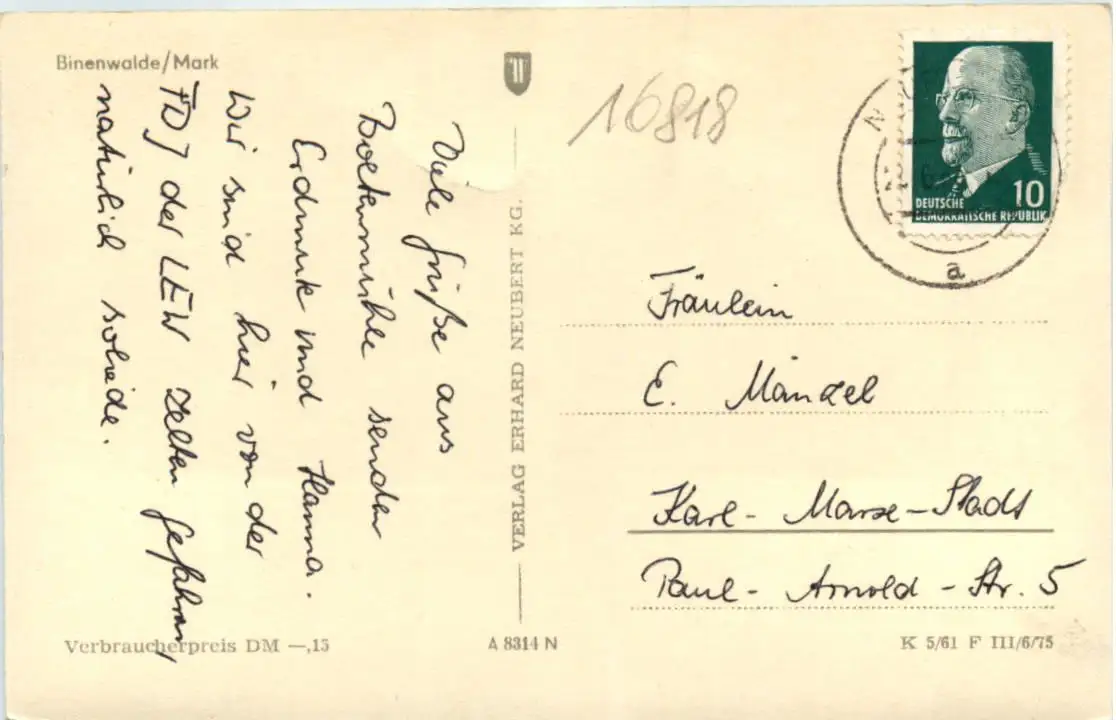 Binenwalde/Mark
Viele Grüße aus
Boltenmühle senden
Erdmute und Hanna.
Wir sind hier von der
FDJ der LEW zelten gefahren,
natürlich solide.
VERLAG ERHARD NEUBERT KG.
16818
10
DEUTSCHE
DEMOKRATISCHE REPUBLIK
a
Fräulein
E. Mänzel
Karl-Marx-Stadt
Paul-Arnold-Str. 5
Verbraucherpreis DM —,15
A 8314 N
K 5/61 F III/6/75